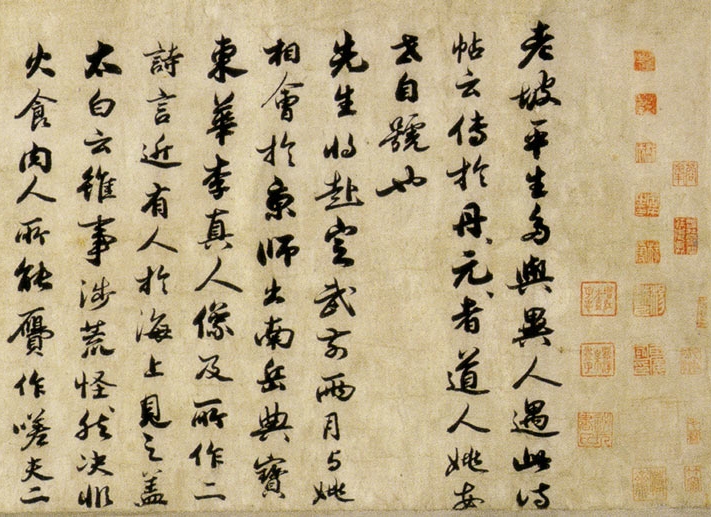 老坡平生多與異人遇此詩
帖云傳於丹〻元〻者道人姚安
世自號也
先生將赴定武前兩月与姚
相會於京師出南岳典寶
東華李真人像及所作二
詩言近有人於海上見之蓋
太白云雖事涉荒怪然決非
火食肉人所能贗作嗟夫二